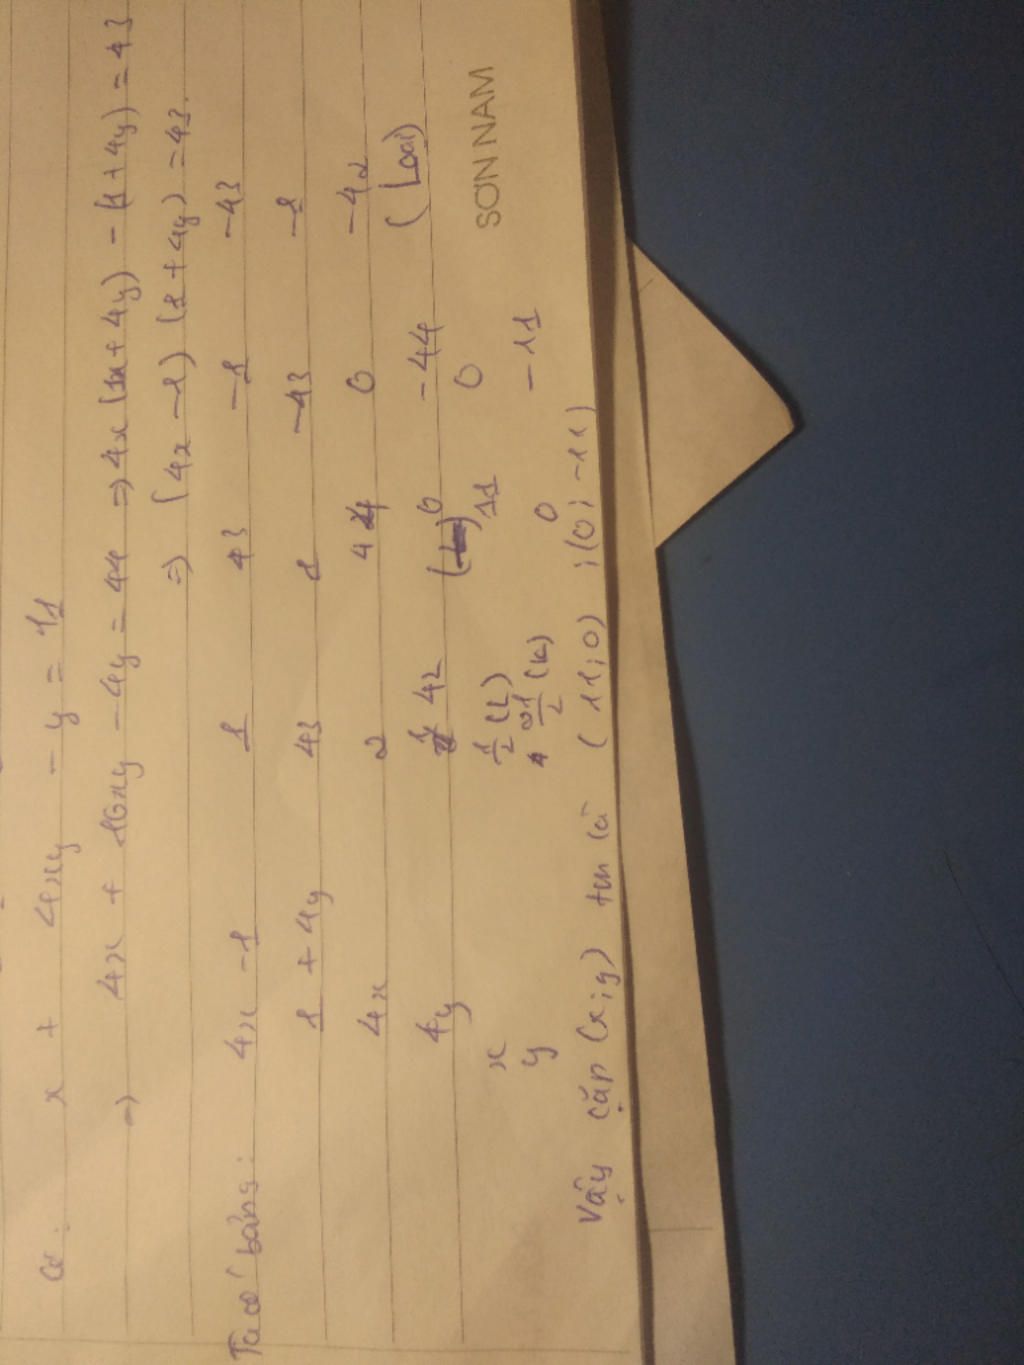 Có: x + 4xy - y = 11
=> 4x + 16xy - 4y = 44 => 4x(1+ 4y) - (1+ 4y) = 43
=> (4x - 1) (1 + 4y) = 43.
Ta có bảng: 4x - 1 1 43 -1 -43
1 + 4y 43 1 -43 -1
4x 2 44 0 -42
4y 42 0 -44 (Loại)
x 1/2 (L) 11 0
y 21/2 (L) 0 -11
Vậy cặp (x;y) tm là (11;0) ; (0; -11)
SƠN NAM